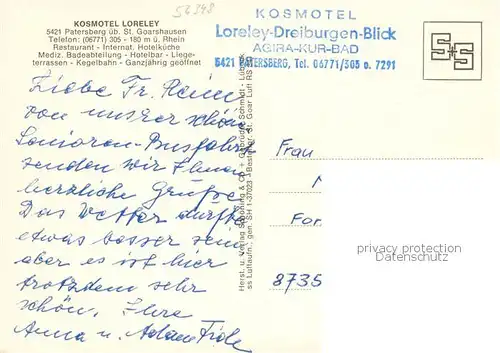 52348
KOSMOTEL LORELEY
5421 Patersberg üb. St. Goarshausen
Telefon: (06771) 305 - 180 m ü. Rhein
Restaurant - Internat. Hotelküche
Mediz. Badeabteilung - Hotelbar - Liege-
terrassen - Kegelbahn - Ganzjährig geöffnet
KOSMOTEL
Loreley-Dreiburgen-Blick
AGIRA-KUR-BAD
5421 PATERSBERG, Tel. 06771/305 o. 7291
S+S
Liebe Fr.
von unserer schönen
Senioren-Busfahrt
senden wir Ihnen
herzliche Grüße
Das Wetter dürfte
etwas besser sein
aber es ist hier
trotzdem sehr
schön. Ihre
Anna u.
Herst. u. Verlag Schöning & Co + Gebrüder Schmidt - Lübeck
ss Luftaufn., gen. SH 1-37023 - Bestellnr. St. Goar Luft RS
Frau
For
8735
privacy protection
Datenschutz